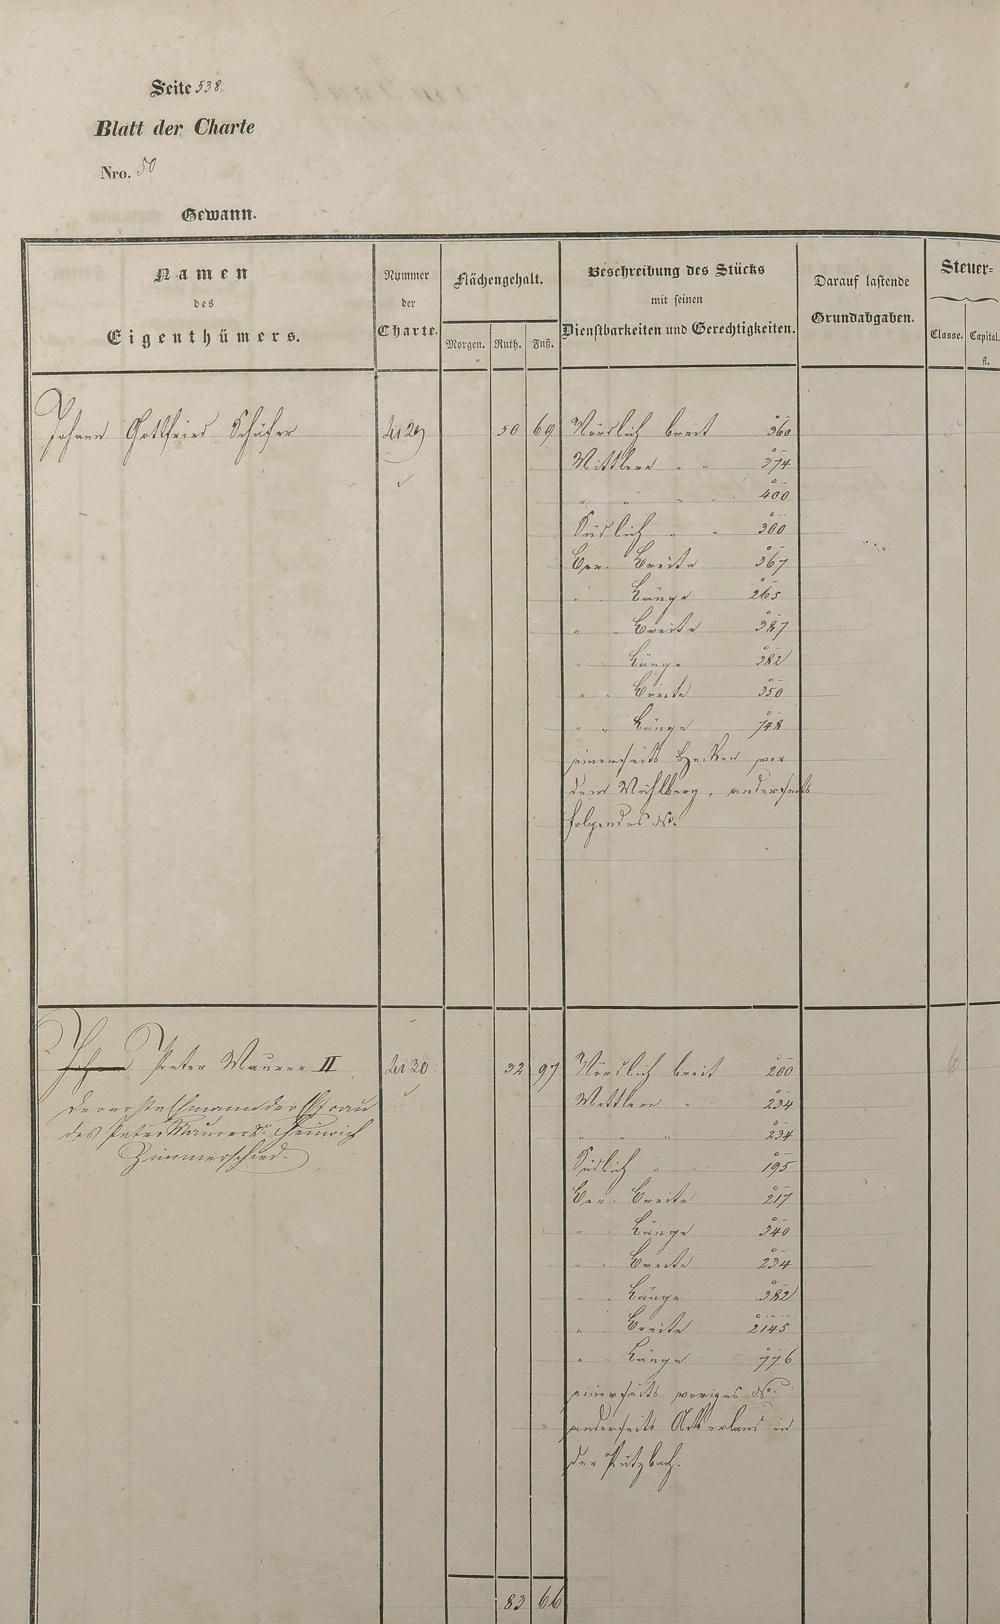 Seite 538.
Blatt der Charte
Nro. 50
Gewann.
Namen
des
Eigenthümers.
Nummer
der
Charte.
Flächengehalt.
Morgen. Ruth. Fuß.
Beschreibung des Stücks
mit seinen
Dienstbarkeiten und Gerechtigkeiten.
Darauf lastende
Grundabgaben.
Steuer-
Classe. Capital.
fl.
Johann Gottfried Schäfer 50 69 Nördlich breit 360
Mittlere " " 374
" " " " 400
Südlich " " 300
Ber. Breite 367
" Länge 265
" " Breite 387
" Länge 382
" " Breite 350
" " Länge 748
einerseits Hecken vor
dem Mühlberg, anderseits
folgendes No.
Johann Peter Maurer II 32 97 Nördlich breit 200
der erste Ehmann der Ehfrau
des Peter Maurer 2r Heinrich
Zimmerschied.
Mittlere " 234
" " " 234
Südlich " " 195
Ber. Breite 217
" Länge 340
" " Breite 234
" " Länge 382
" Breite 2145
" " Länge 776
einerseits voriges No.
anderseits Ackerland in
der Pützbach.
83 66